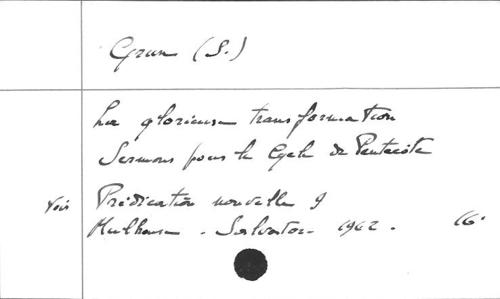 Grun (S.)
La glorieuse transformation
Sermons pour le Cycle de Pentecôte
Voir Prédication nouvelle 9
Mulhouse - Salvator - 1962 . 16°